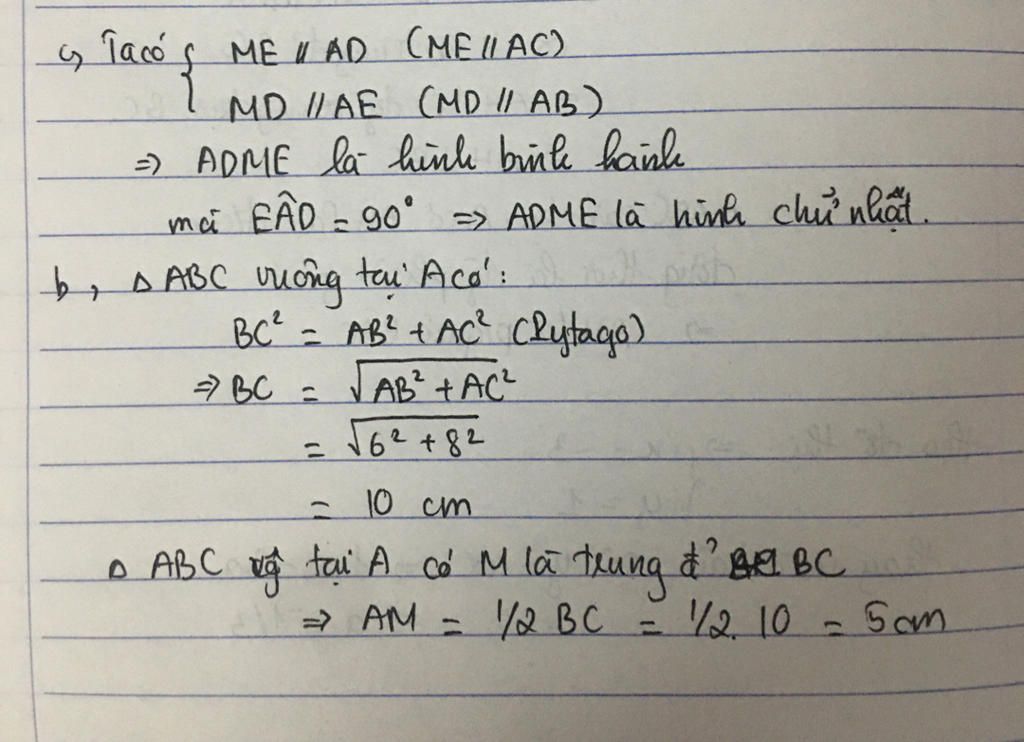 a, Ta có { ME // AD (ME // AC)
MD // AE (MD // AB)
=> ADME là hình bình hành
mà EÂD = 90° => ADME là hình chữ nhật.
b, △ ABC vuông tại A có:
BC² = AB² + AC² (Pytago)
=> BC = √AB² + AC²
= √6² + 8²
= 10 cm
△ ABC vg tại A có M là trung đ' BC
=> AM = 1/2 BC = 1/2. 10 = 5 cm